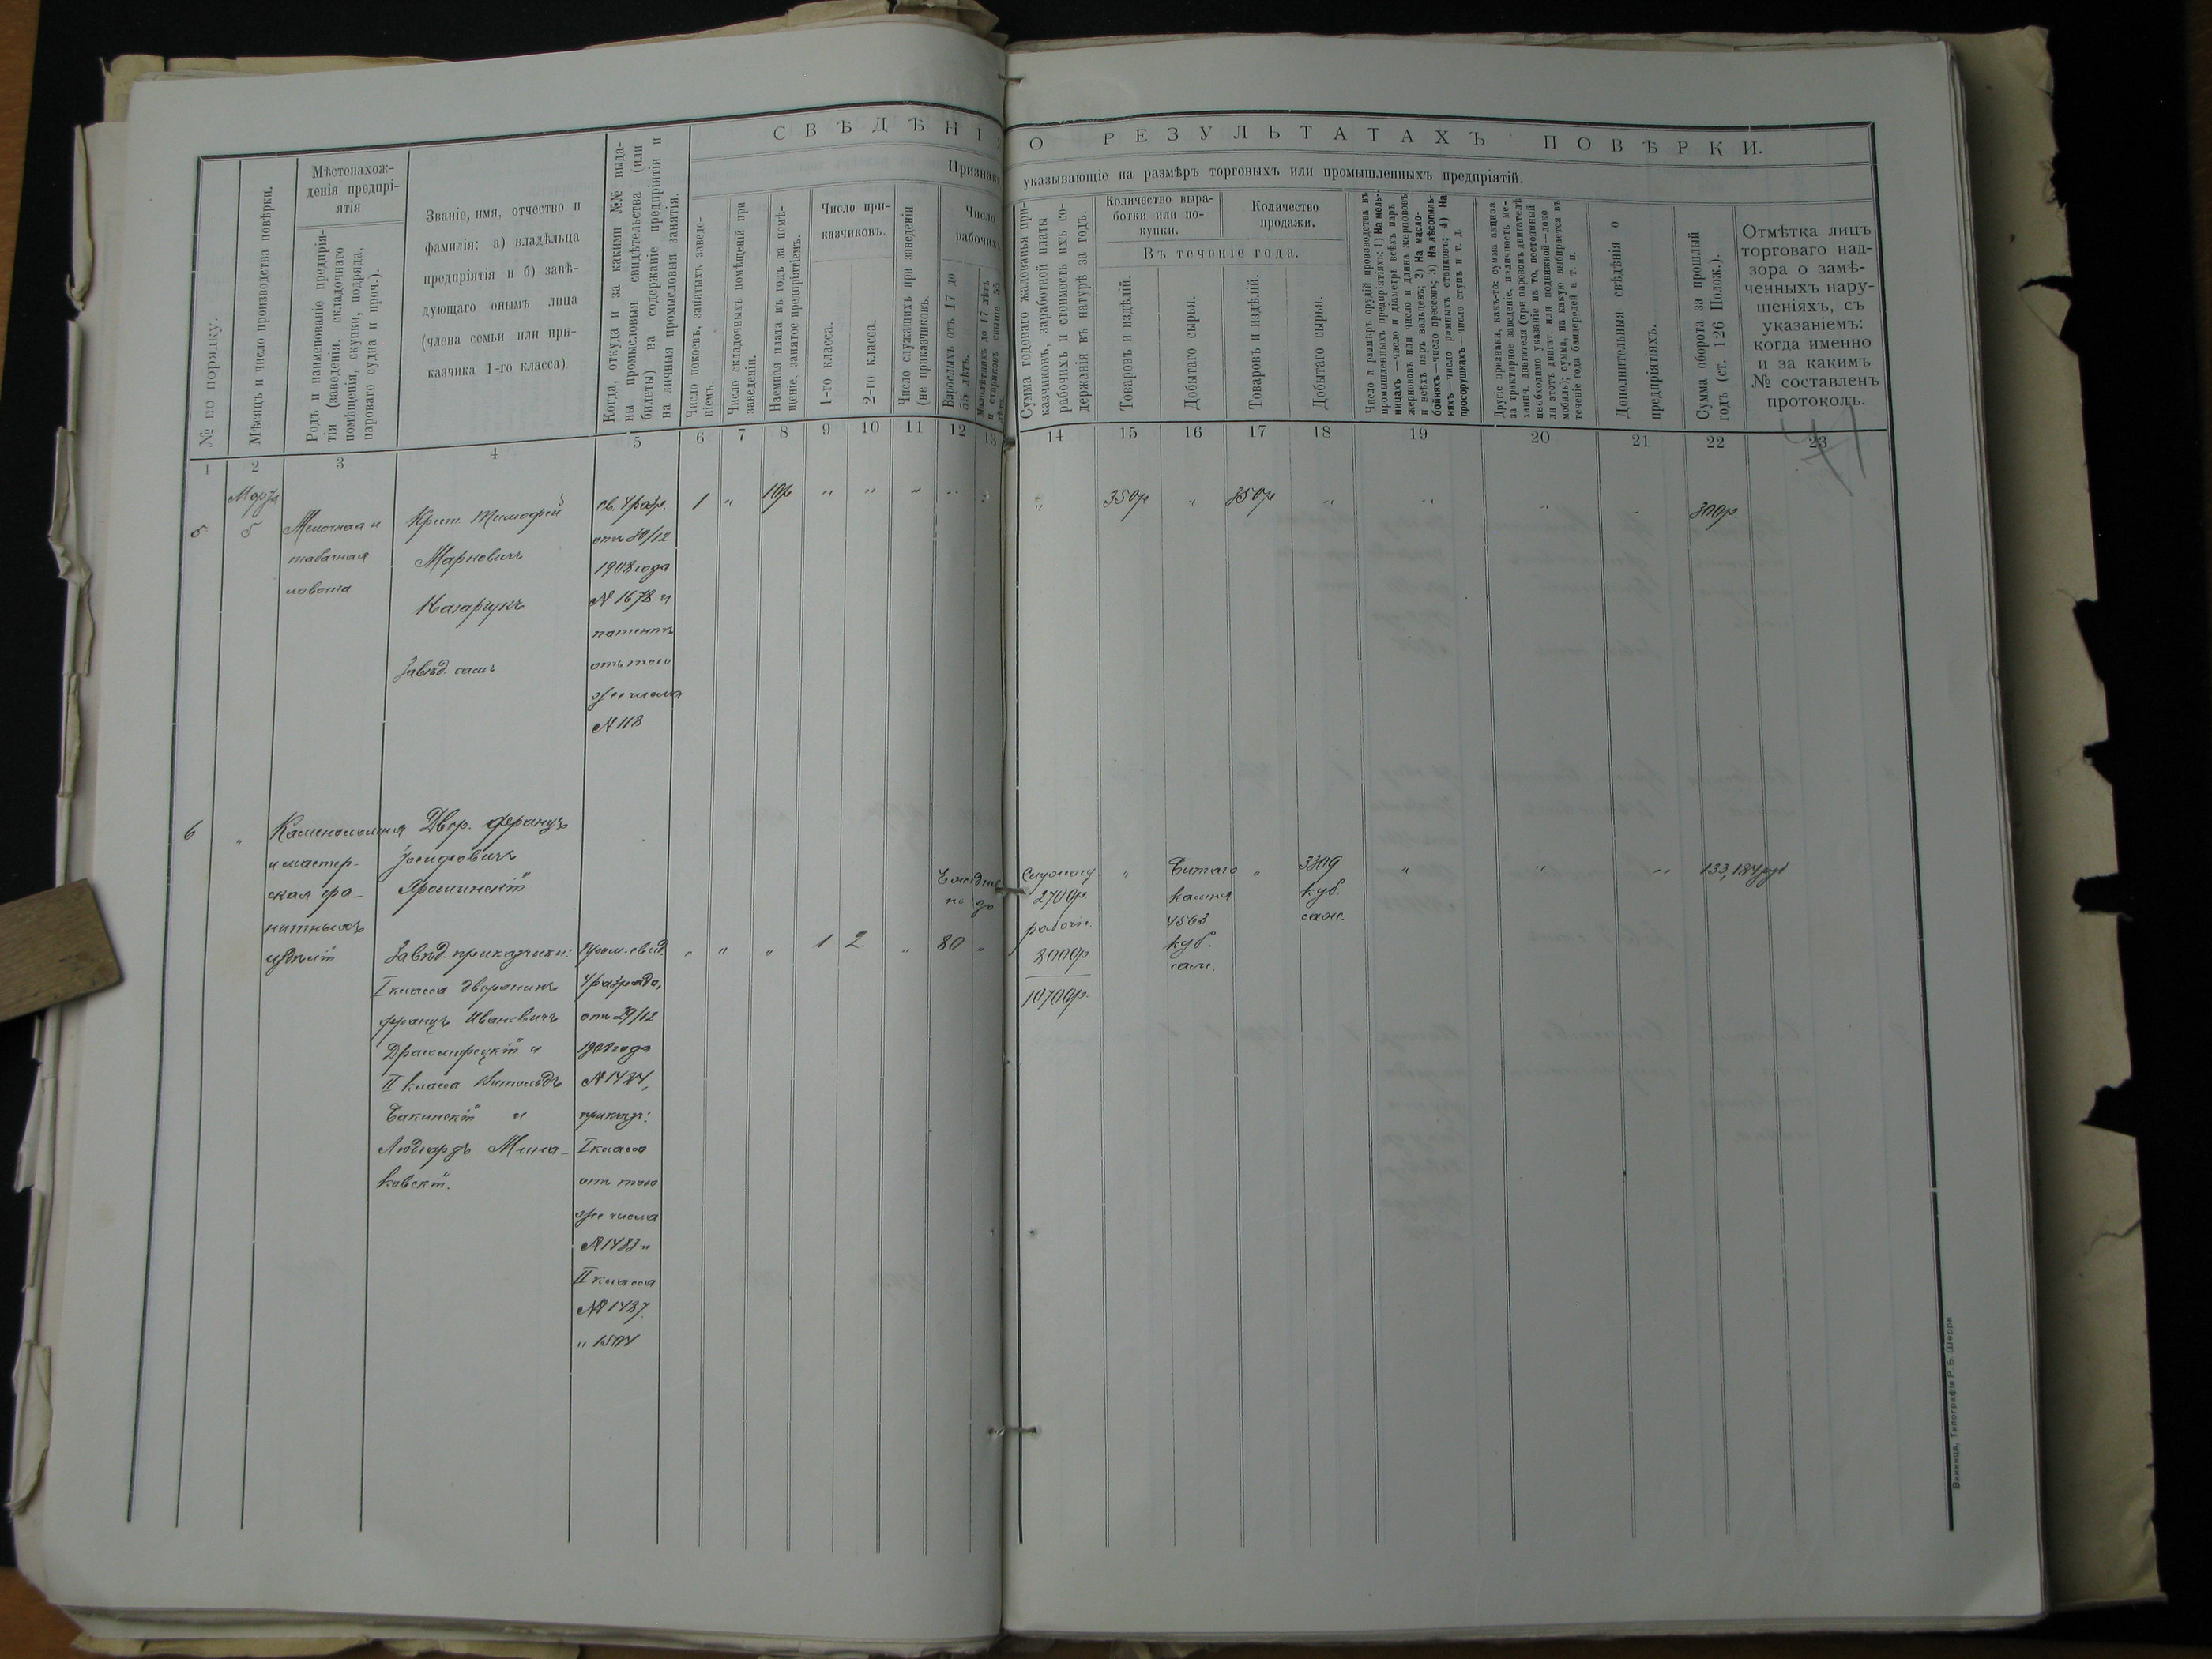 СВѢДѢНІЯ О РЕЗУЛЬТАТАХЪ ПОВѢРКИ.
Признаки, указывающіе на размѣръ торговыхъ или промышленныхъ предпріятій.
№ по порядку.
Мѣсяцъ и число производства повѣрки.
Мѣстонахож-
денія предпрі-
ятія
Родъ и наименованіе предпрія-
тія (заведенія, складочнаго
помѣщенія, скупки, подряда,
пароваго судна и проч.).
Званіе, имя, отчество и
фамилія: а) владѣльца
предпріятія и б) завѣ-
дующаго онымъ лица
(члена семьи или при-
казчика 1-го класса).
Когда, откуда и за какими №№ выда-
ны промысловыя свидѣтельства (или
билеты) на содержаніе предпріятія и
на личныя промысловыя занятія.
Число покоевъ, занятыхъ заведе-
ніемъ.
Число складочныхъ помѣщеній при
заведеніи.
Наемная плата въ годъ за помѣ-
щеніе, занятое предпріятіемъ.
Число при-
казчиковъ.
1-го класса.
2-го класса.
Число служащихъ при заведеніи
(не приказчиковъ).
Число
рабочихъ
Взрослыхъ отъ 17 до
55 лѣтъ.
Малолѣтнихъ до 17 лѣтъ
и стариковъ свыше 55
лѣтъ.
Сумма годоваго жалованья при-
казчиковъ, заработной платы
рабочихъ и стоимость ихъ со-
держанія въ натурѣ за годъ.
Количество выра-
ботки или по-
купки.
Количество
продажи.
Въ теченіе года.
Товаровъ и издѣлій.
Добытаго сырья.
Товаровъ и издѣлій.
Добытаго сырья.
Число и размѣръ орудій производства въ
промышленныхъ предпріятіяхъ: 1) На мель-
ницахъ—число и діаметръ всѣхъ паръ
жернововъ или число и длина жернововъ
и всѣхъ паръ вальцевъ; 2) На масло-
бойняхъ—число прессовъ; 3) На лѣсопиль-
няхъ—число рамныхъ станковъ; 4) На
просорушкахъ—число ступъ и т. д.
Другіе признаки, какъ-то: сумма акциза
за трактирное заведеніе, наличность ме-
ханич. двигателя (при паровомъ двигателѣ
необходимо указаніе на то, постоянный
ли этотъ двигат. или подвижной—локо
мобиль); сумма, на какую выбирается въ
теченіе года бандеролей и т. п.
Дополнительныя свѣдѣнія о
предпріятіяхъ.
Сумма оборота за прошлый
годъ (ст. 126 Полож.).
Отмѣтка лицъ
торговаго над-
зора о замѣ-
ченныхъ нару-
шеніяхъ, съ
указаніемъ:
когда именно
и за какимъ
№ составленъ
протоколъ.
1 2 3 4 5 6 7 8 9 10 11 12 13 14 15 16 17 18 19 20 21 22 23
Марта
5 5
Мелочная и
табачная
лавочка
Крест. Тимофей
Марковичъ
Казарчукъ
Завѣд. самъ
св. 4 разр.
отъ 30/12
1908 года
№ 1678 и
патентъ
отъ того
же числа
№ 118
1 " 10р " " " " " " 350р " 350р " " " " 300р.
6 "
Каменоломня
и мастер-
ская гра-
нитныхъ
издѣлій
Двор. Францъ
Іосифовичъ
Ярошинскій
Завѣд. приказчики:
I класса дворянинъ
Францъ Ивановичъ
Драгомирецкій и
II класса Витольдъ
Бакинскій и
Людгардъ Мина-
ковскій.
Пром. свид.
4 разряда,
отъ 29/12
1908 года
№ 1484,
приказ:
I класса
отъ того
же числа
№ 1483 и
II класса
№№ 1487
" 1504
" " " 1 2. "
Ежеднев
но до
80 "
Служащ
2700р.
рабочіе.
8000р
10700р.
"
Битаго
камня
4563
куб.
саж.
"
3309
куб.
саж.
" " " 133,184 руб
Винница, Типографія Р. Б. Шерра